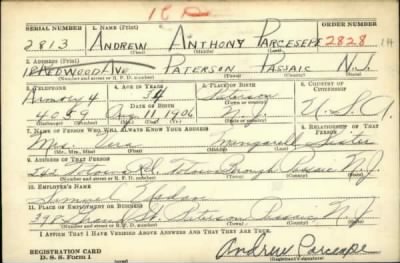 SERIAL NUMBER 1. NAME (Print) ORDER NUMBER
2813 ANDREW ANTHONY PARCESEPE 2828
(First) (Middle) (Last)
2. ADDRESS (Print)
REDWOOD AVE PATERSON PASSAIC N.J.
(Number and street or R. F. D. number) (Town) (County) (State)
3. TELEPHONE 4. AGE IN YEARS 5. PLACE OF BIRTH 6. COUNTRY OF CITIZENSHIP
Armory 4 34 Paterson
DATE OF BIRTH (Town or county)
4059 Aug 11 1906 N.J. U.S.A.
(Exchange) (Number) (Mo.) (Day) (Yr.) (State or country)
7. NAME OF PERSON WHO WILL ALWAYS KNOW YOUR ADDRESS 8. RELATIONSHIP OF THAT PERSON
Mrs. Vera Sister
(Mr., Mrs., Miss) (First) (Middle) (Last)
9. ADDRESS OF THAT PERSON
Totowa Rd. Totowa Borough Passaic N.J.
(Number and street or R. F. D. number) (Town) (County) (State)
10. EMPLOYER'S NAME
11. PLACE OF EMPLOYMENT OR BUSINESS
St. Paterson Passaic N.J.
(Number and street or R. F. D. number) (Town) (County) (State)
I AFFIRM THAT I HAVE VERIFIED ABOVE ANSWERS AND THAT THEY ARE TRUE.
REGISTRATION CARD
D. S. S. Form 1 Andrew Parcesepe
(Registrant's signature)